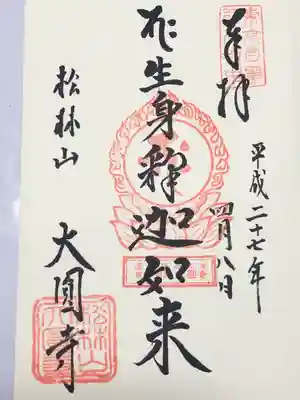 奉拝
平成二十七年
四月八日
生身釋迦如来
松林山
大圓寺
松林山